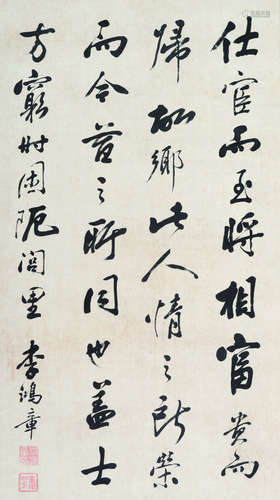 仕宦而至將相富貴而
歸故鄉此人情之所榮
而今昔之所同也蓋士
方窮時困阨閭里 李鴻章